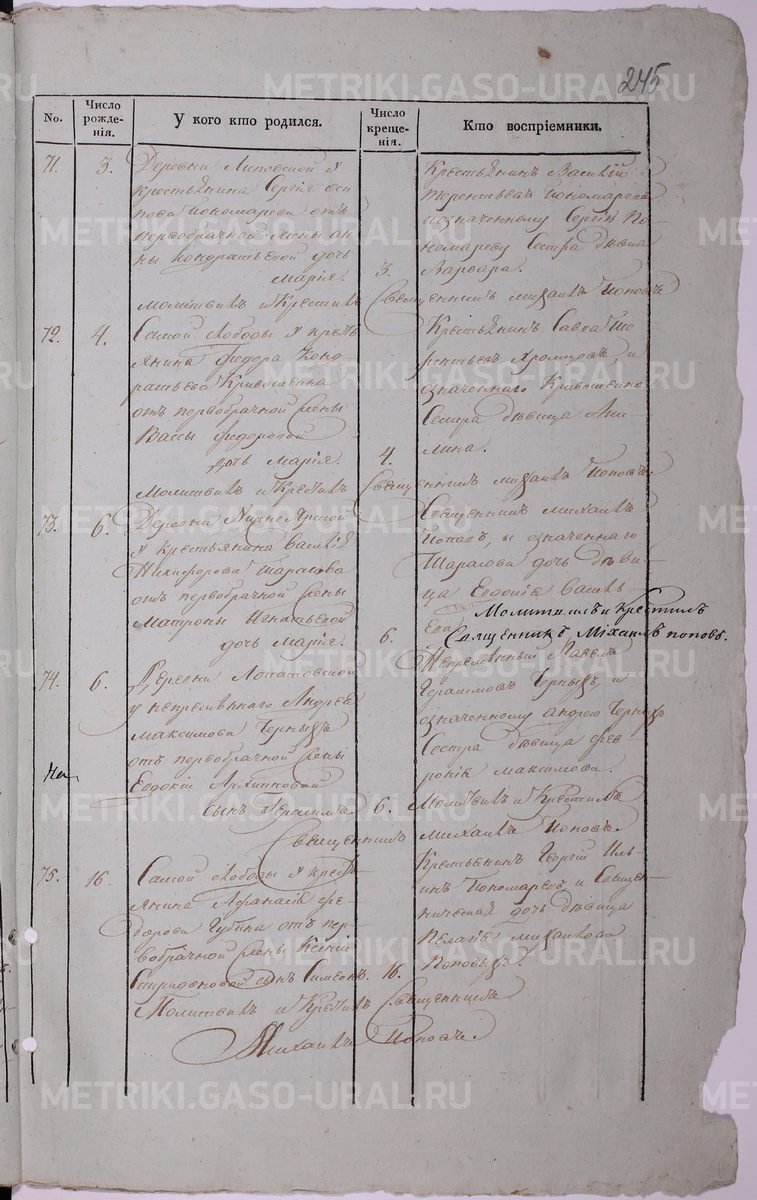 245
METRIKI.GASO-URAL.RU
No.
Число рожде-нія.
У кого кто родился.
Число креще-нія.
Кто воспріемники.
71.
3.
Деревни Липовской у
крестьянина Сергія оси
пова Пономарева отъ
первобрачной жены ан
ны Кондратьевой дочь
Марія.
молитвилъ и Крестилъ
Крестьянинъ Василій
Терентьевъ Пономаревъ
означенному Сергію По
номареву Сестра дѣвица
3.
Варвара.
Священникъ михаилъ Поповъ
72.
4.
Самой слободы у крест
янина Федора Конд
ратьева Кривошеина
отъ первобрачной жены
Вассы Федоровой
дочь Марія.
Молитвилъ и Крестилъ
Крестьянинъ Савва
и
означеннаго Кривошеина
Сестра дѣвица Аки
4.
лина.
Священникъ михаилъ Поповъ.
73.
6.
Деревни
у крестьянина Василія
Никифорова
отъ первобрачной жены
Матроны Игнатьевой
дочь Марія.
Священникъ михаилъ
Поповъ, и означеннаго
дочь дѣви
ца Евдокія Василь
ева
Молитвилъ и крестилъ
6.
Священникъ Міхаилъ поповъ.
74.
6.
Деревни Лопатовской
у непремѣннаго Андрея
Максимова Черныхъ
отъ первобрачной жены
Евдокіи Архиповой
сынъ Герасимъ.
Непремѣнный Павелъ
Герасимовъ Черныхъ, и
означенному андрею Черныхъ
Сестра дѣвица Фев
ронія максимова.
6.
Молитвилъ и Крестилъ
Священникъ михаилъ Поповъ.
75.
16.
Самой слободы у крест
янина Афанасія Фе
дорова Губина отъ пер
вобрачной жены Ксеніи
Спиридоновой сынъ Симеонъ.
Крестьянинъ Георгій Иль
инъ Пономаревъ и Священ
ническая дочь дѣвица
Пелагія михаилова
16.
Поповыхъ.
Молитвилъ и Крестилъ Священникъ
Михаилъ Поповъ.